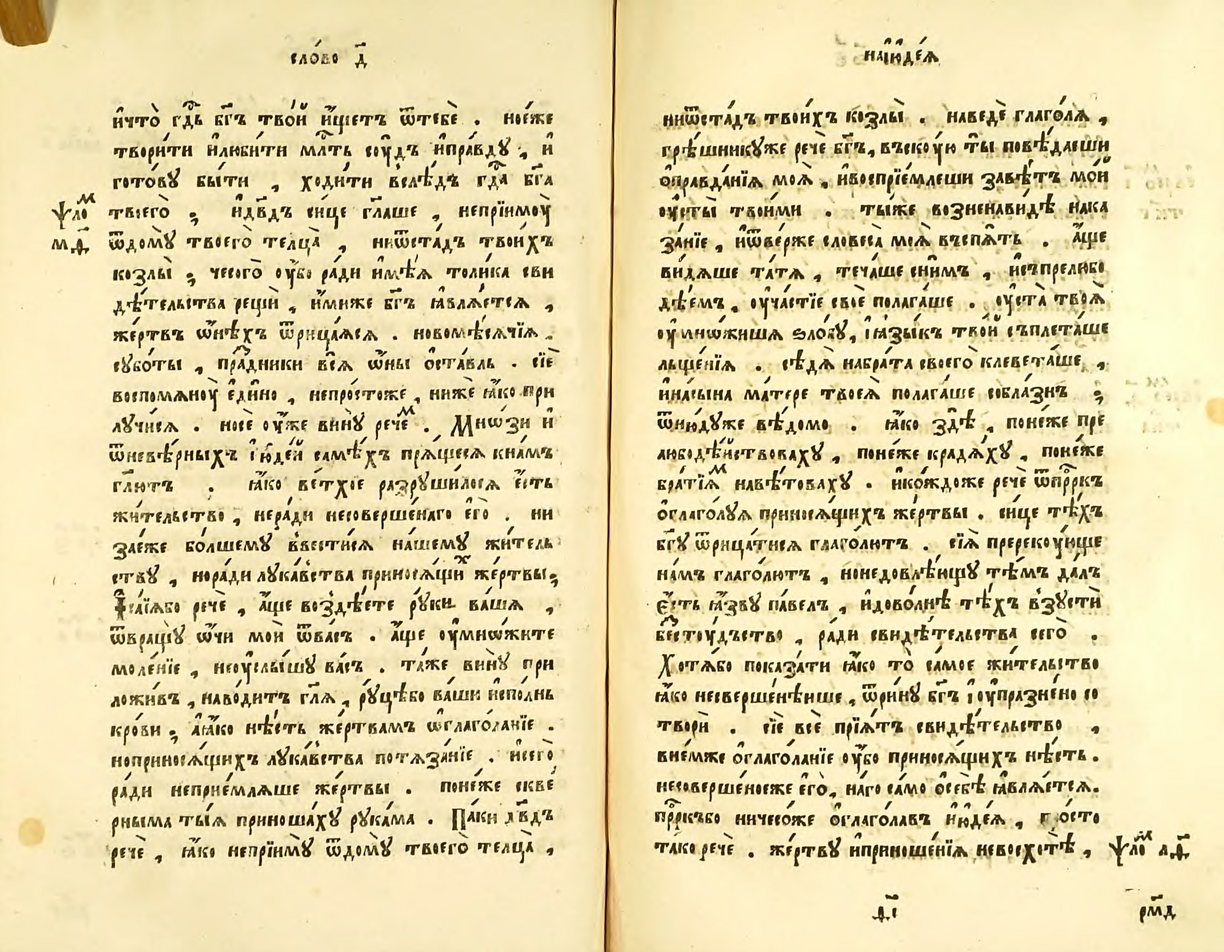 сло́во д҃
и҆что̀ гдⷭ҇ь бг҃ъ тво́й и҆́щетъ ѿтебѐ . но́еже
твори́ти и҆люби́ти млⷭ҇ть сꙋ́дъ и҆пра́вдꙋ , и҆
гото́вꙋ бы́ти , ходи́ти всле́дъ гдⷭ҇а бг҃а
твоего̀ ; и҆дв҃дъ си́це гл҃аше , неприимоу̀
ѱло́ⷨ
м҃д
ѿдо́мꙋ твоего̀ телца̀ , ниѿста́дъ твои́хъ
козлы̀ ; чесого̀ оу҆́бо ра́ди и҆мѣ́ѧ толи́ка сви
дѣ́тельства рещѝ , и҆́миже бг҃ъ ꙗ҆влѧ́етсѧ ,
же́ртвъ ѡ҆нѣ́хъ ѿрица́ѧсѧ . новомⷭ҇ѣсѧчїѧ .
сꙋбо́ты , пра́здники всѧ̀ ѡ҆́ны ѡ҆ста́вль . сїѐ
воспомѧноу̀ є҆ди́но , непро́стоже , нижѐ ꙗ҆́ко при
лꙋчи́сѧ . но́се оу҆́же винꙋ̀ рече́ⷨ . Мно́ѕи и҆
ѿневѣ́рныхъ і҆ю҆де́й самѣ́хъ прѧ́щесѧ кна́мъ
гл҃ютъ . ꙗ҆́ко ве́тхїе разрꙋши́лосѧ є҆́сть
жи́тельство , нера́ди несоверше́наго є҆го̀ . ни
зае́же бо́лшемꙋ ввести́сѧ на́шемꙋ жи́тель
ствꙋ , нора́ди лꙋка́вства приносѧ́щиⷯ же́ртвы ;
І҆са́їѧбо речѐ , а҆́ще возде́жете рꙋ́ки ва́шѧ ,
ѿвращꙋ̀ ѻ҆́чи моѝ ѿва́съ . а҆́ще оу҆мно́жите
моле́нїе , неоу҆слы́шꙋ ва́съ . та́же винꙋ̀ при
ложи́въ , наво́дитъ гл҃ѧ , рꙋ́цѣбо ва́ши и҆спо́лнь
кро́ви ; а҆ꙗ҆́ко нѣ́сть же́ртвамъ ѡ҆глаго́ланїе .
ноприносѧ́щихъ лꙋка́вства потѧза́нїе . и҆сего̀
ра́ди неприе́млѧше же́ртвы . поне́же скве
рныма ты́ѧ приноша́хꙋ рꙋка́ма . Па́ки дв҃дъ
речѐ , ꙗ҆́ко неприимꙋ̀ ѿдо́мꙋ твоего̀ телца̀ ,
наі҆ю҆де́ѧ
ниѿста́дъ твои́хъ козлы̀ . наведѐ глаго́лѧ ,
грѣ́шникꙋже речѐ бг҃ъ , въскꙋ́ю ты̀ повѣ́даеши
ѡ҆правда́нїѧ моѧ̀ , и҆воспрїе́млеши завѣ́тъ мо́й
оу҆сты̀ твои́ми . ты́же возненави́дѣ нака
за́нїе , и҆ѿве́рже словеса̀ моѧ̀ въспѧ́ть . а҆́ще
ви́дѧше та́тѧ , теча́ше сни́мъ , и҆спрелюбо
дѣ́емъ , оу҆ча́стїе своѐ полага́ше . оу҆ста̀ твоѧ̀
оу҆мно́жишѧ ѕло́бꙋ , і҆ꙗ҆зы́къ тво́й съплета́ше
льще́нїѧ . сѣдѧ̀ набра́та своего̀ клевета́ше ,
и҆насы́на ма́тере твоеѧ̀ полага́ше собла́знъ ;
ѿню́дꙋже вѣ́домо . ꙗ҆́ко здѣ̀ , поне́же пре
любодѣ́йствовахꙋ , поне́же крадѧ́хꙋ , поне́же
бра́тїѧⷨ навѣ́товахꙋ . и҆ко́ждоже речѐ ѿпрⷪ҇ркъ
ѡ҆глаго́лꙋѧ приносѧ́щихъ же́ртвы . си́це тѣ́хъ
бг҃ꙋ ѿрица́тисѧ глаго́лютъ . сїѧ̀ пререкꙋ́юще
на́мъ глаго́лютъ , нонедовлѣ́ющꙋ тѣ́мъ да́лъ
є҆́сть ꙗ҆́звꙋ па́велъ , и҆дово́лнѣ тѣ́хъ взꙋстѝ
бестꙋ́дъство , ра́ди свидѣ́тельства сего̀ .
Хотѧ́бо показа́ти ꙗ҆́ко то̀ са́мое жи́тельство
ꙗ҆́ко несверше́нѣйше , ѿри́нꙋ бг҃ъ і҆оу҆празне́но со
творѝ . сїѐ всѐ прїѧ́тъ свидѣ́тельство ,
вне́мже ѡ҆глаго́ланїе оу҆́бо приносѧ́щихъ нѣ́сть .
несоверше́ноеже є҆го̀ , на́го само̀ ѡ҆себѣ̀ ꙗ҆влѧ́етсѧ .
прⷪ҇ркъбо ничесо́же ѡ҆глаго́лавъ і҆ю҆де́ѧ , про́сто
та́ко речѐ . же́ртвꙋ и҆приноше́нїѧ невосхотѣ̀ ,
ѱло́ⷨ л҃ѳ
д҃і
рм҃д